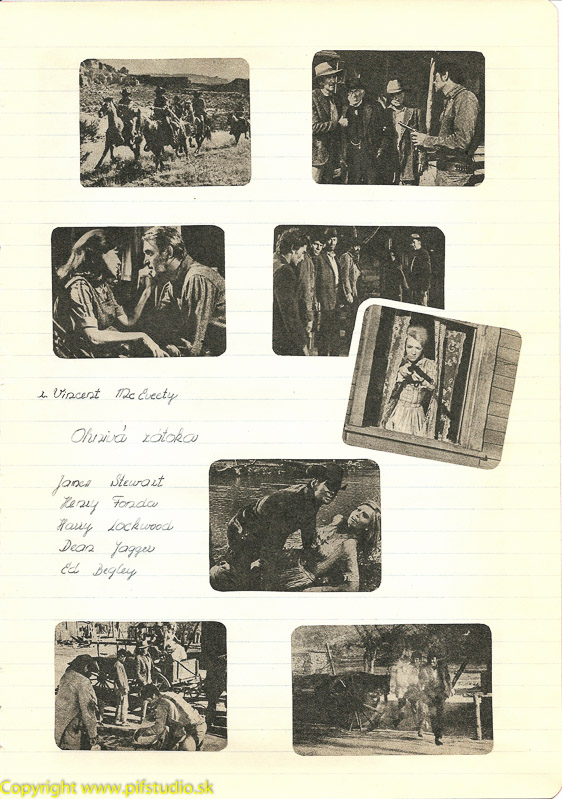 r. Vincent McEveety
Ohnivá zátoka
James Stewart
Henry Fonda
Harry Lockwood
Dean Jagger
Ed Begley
Copyright www.pifstudio.sk